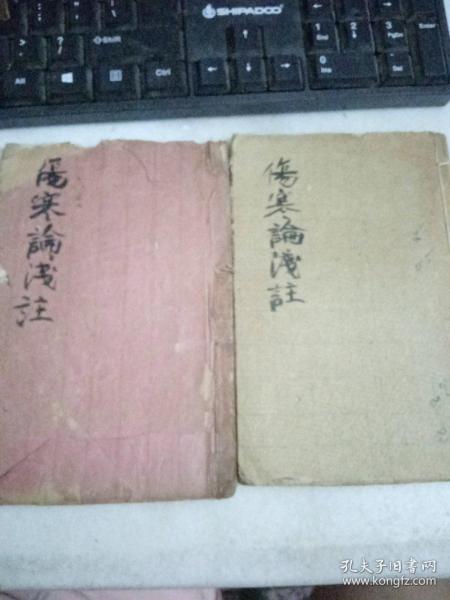 SHIPADOO
Shift
Alt
Alt
Ctrl
1
End
2
3
PgDn
Enter
0
Ins
Del
傷寒論浅註
傷寒論淺註
孔夫子旧书网
www.kongfz.com